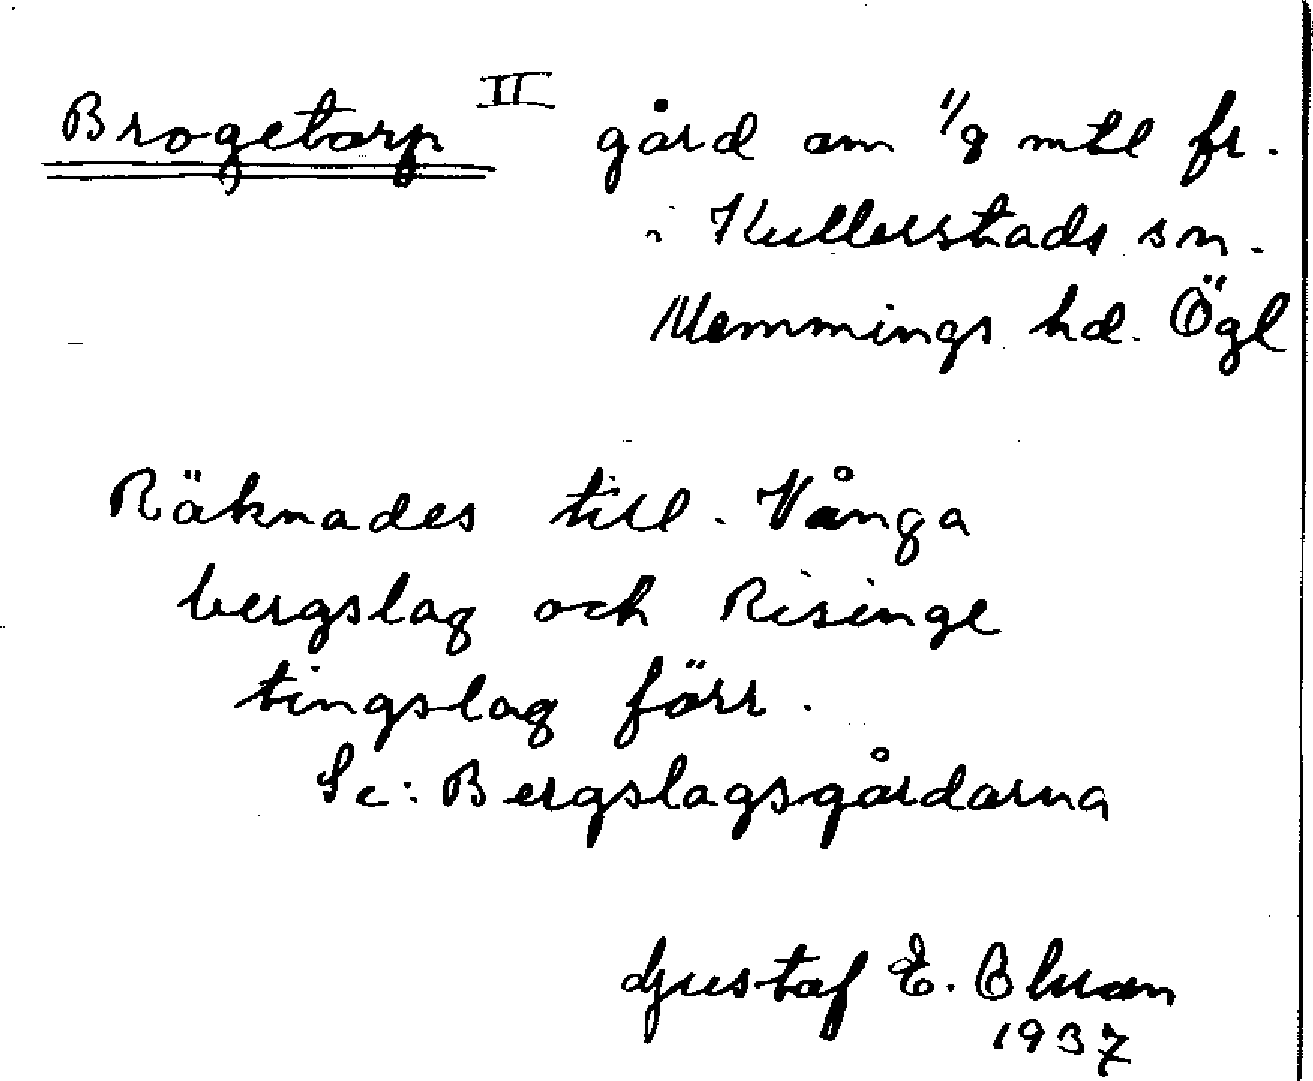 Brogetorp II gård om 1/8 mtl fr.
i Kullerstads sn.
Memmings hd. Ögl
Räknades till Vånga
bergslag och Risinge
tingslag förr.
Se: Bergslagsgårdarna
Gustaf E.
1937